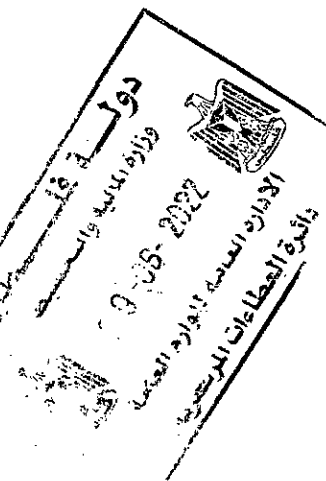 دولة
وزارة المالية
-06-2022
الإدارة العامة للوازم العامة
دائرة العطاءات المركزية